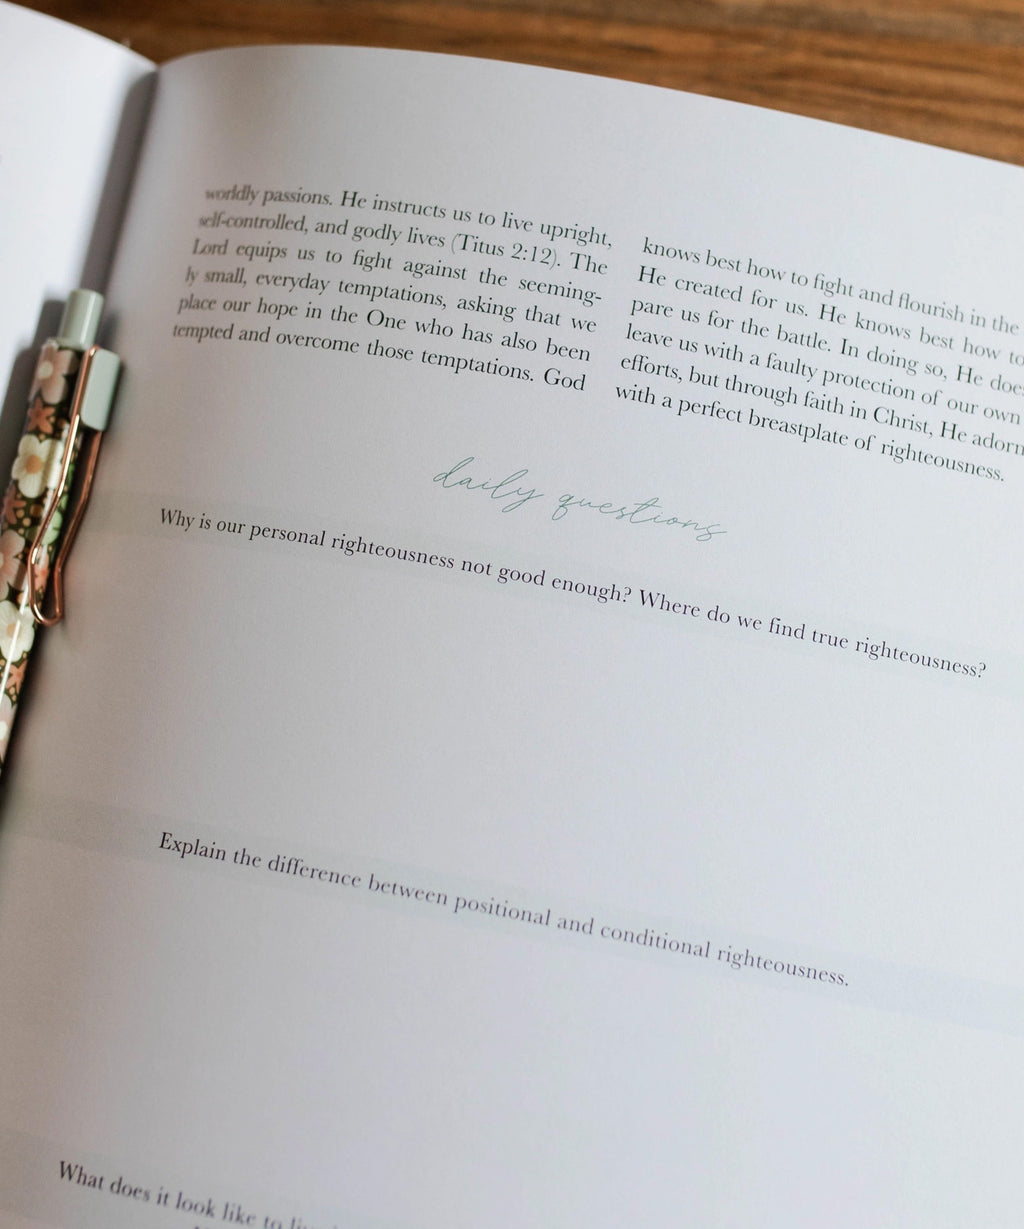 worldly passions. He instructs us to live upright,
self-controlled, and godly lives (Titus 2:12). The
Lord equips us to fight against the seeming-
ly small, everyday temptations, asking that we
place our hope in the One who has also been
tempted and overcome those temptations. God
knows best how to fight and flourish in the
He created for us. He knows best how to
pare us for the battle. In doing so, He
leave us with a faulty protection of our own
efforts, but through faith in Christ, He
with a perfect breastplate of righteousness.
daily questions
Why is our personal righteousness not good enough? Where do we find true righteousness?
Explain the difference between positional and conditional righteousness.
What does it look like to